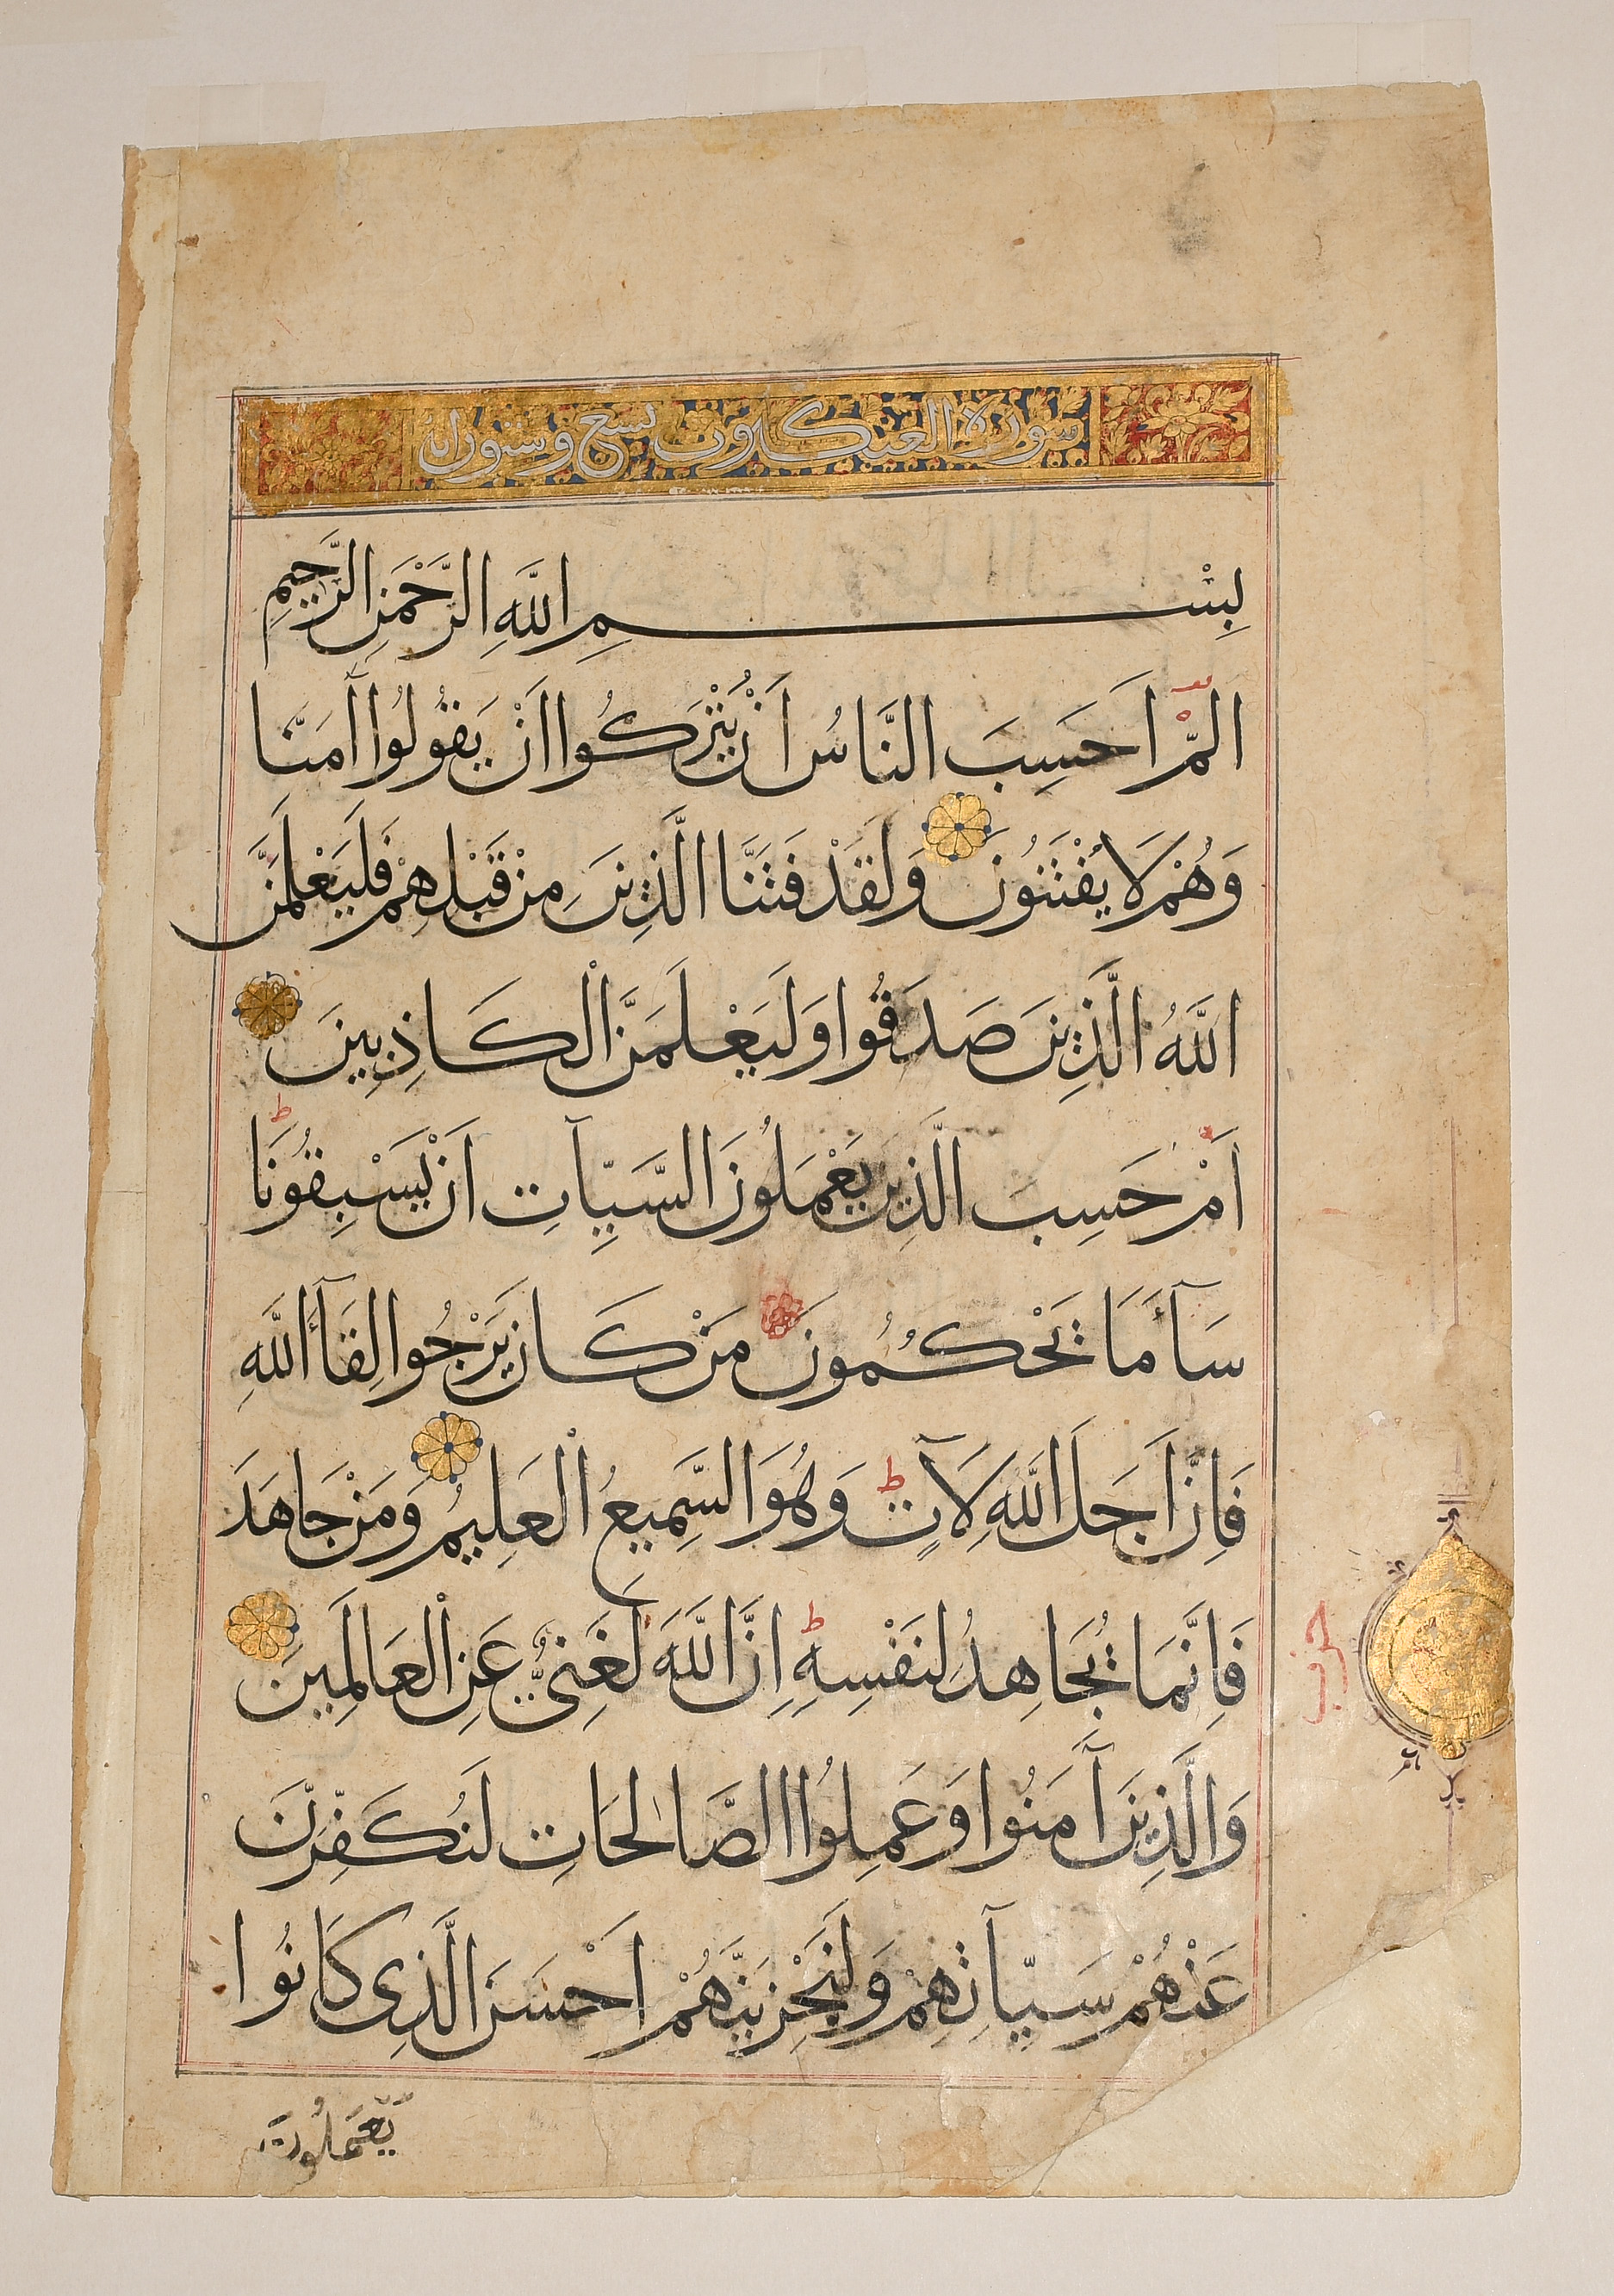 سورة العنكبوت تسع وستون اية
بِسْمِ اللَّهِ الرَّحْمَنِ الرَّحِيمِ
الٓمّٓ اَحَسِبَ النَّاسُ اَنْ يُتْرَكُوا اَنْ يَقُولُوا آمَنَّا
وَهُمْ لَا يُفْتَنُونَ وَلَقَدْ فَتَنَّا الَّذِينَ مِنْ قَبْلِهِمْ فَلَيَعْلَمَنَّ
اللَّهُ الَّذِينَ صَدَقُوا وَلَيَعْلَمَنَّ الْكَاذِبِينَ
اَمْ حَسِبَ الَّذِينَ يَعْمَلُونَ السَّيِّآتِ اَنْ يَسْبِقُونَا ط
سَآءَ مَا يَحْكُمُونَ مَنْ كَانَ يَرْجُوا لِقَآءَ اللَّهِ
فَاِنَّ اَجَلَ اللَّهِ لَآتٍ ط وَهُوَ السَّمِيعُ الْعَلِيمُ وَمَنْ جَاهَدَ
فَاِنَّمَا يُجَاهِدُ لِنَفْسِهِ ط اِنَّ اللَّهَ لَغَنِيٌّ عَنِ الْعَالَمِينَ
حزب
وَالَّذِينَ آمَنُوا وَعَمِلُوا الصَّالِحَاتِ لَنُكَفِّرَنَّ
عَنْهُمْ سَيِّآتِهِمْ وَلَنَجْزِيَنَّهُمْ اَحْسَنَ الَّذِى كَانُوا
يَعْمَلُونَ